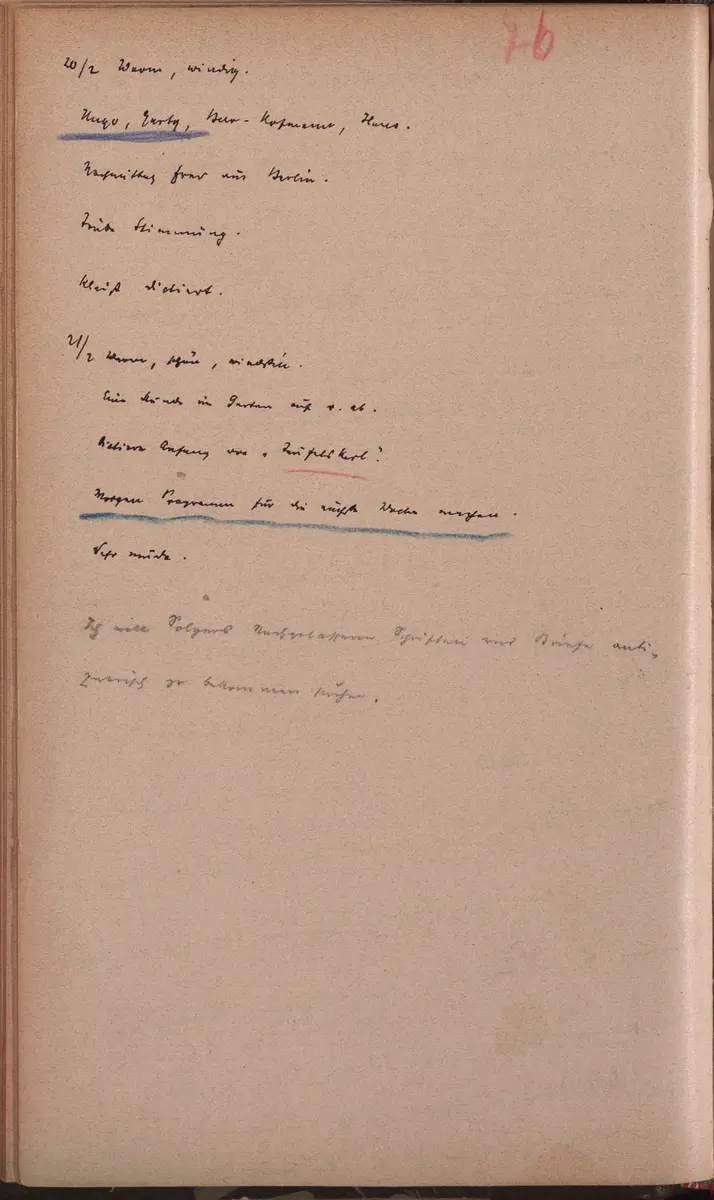 76
20/2 Warm, windig.
Hugo, Gerty, Beer-Hofmann, Hans.
Nachmittag Frau aus Berlin.
Trübe Stimmung.
Kleist dictiert.
21/2 Warm, schön, windstill.
Eine Stunde im Garten auf u. ab.
Dictiere Anfang von „Teufelskerl".
Morgen Programm für die nächste Woche machen.
Sehr müde.
Ich will Solgers Nachgelassene Schriften und Briefe anti-
quarisch zu bekommen suchen.